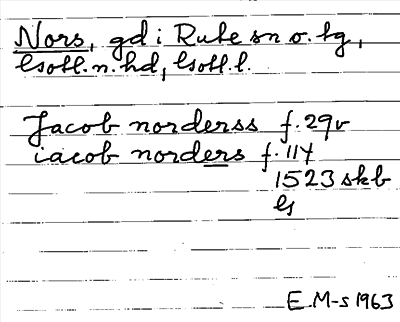 Nors, gd i Rute sn o. tg,
Gotl. n. hd, Gotl. l.
Jacob norderss f. 29v
iacob norders f. 117
1523 skb
G
E. M-s 1963